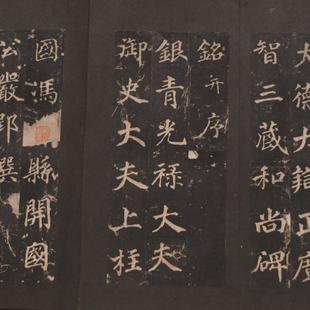 大德大辯正廣
智三藏和尚碑
銘并序
銀青光禄大夫
御史大夫上柱
國馮縣開國
公嚴郢撰